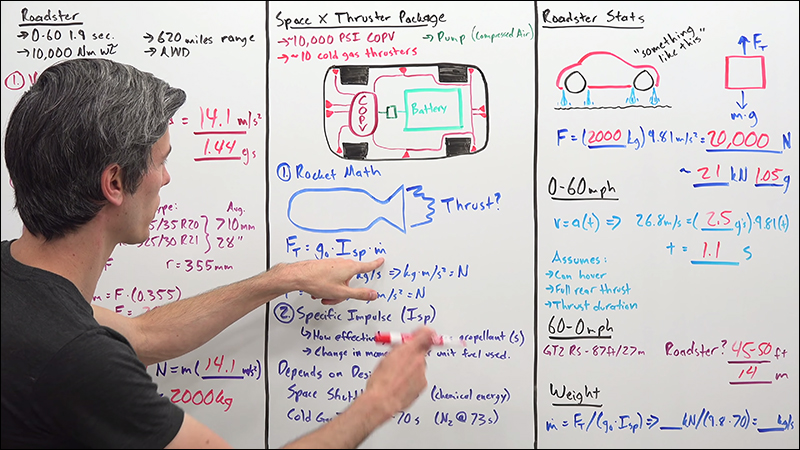 Roadster
→ 0-60 1.9 sec.
→ 620 miles range
→ 10,000 Nm
→ AWD
1.
s = 14.1 m/s²
1.44 gs
pe: Avg.
5/35 R20 >10mm
25/30 R21 28"
r = 355mm
m = F·(0.355)
N = m(14.1 m/s²)
= 2000kg
Space X Thruster Package
→ ~10,000 PSI COPV
→ Pump (Compressed Air)
→ ~10 cold gas thrusters
COPV
Battery
1. Rocket Math
Thrust?
F_T = g₀·I_sp·ṁ
kg/s ⇒ kg·m/s² = N
m/s² = N
2. Specific Impulse (I_sp)
↳ How effective propellant (s)
↳ Change in mom unit fuel used.
Depends on Desi
Space Shut (chemical energy)
Cold G -70s (N₂ @ 73s)
Roadster Stats
"something like this"
F_T
m·g
F = (2000 kg) 9.81 m/s² = 20,000 N
~ 21 kN 1.05 g
0-60mph
v = a(t) ⇒ 26.8 m/s = (2.5 g's)·9.81(t)
t = 1.1 s
Assumes:
→ Can hover
→ Full rear thrust
→ Thrust duration
60-0mph
GT2 RS - 87ft/27m
Roadster? 45-50 ft
14 m
Weight
ṁ = F_T/(g₀·I_sp) ⇒ __ kN/(9.8·70) = __ kg/s